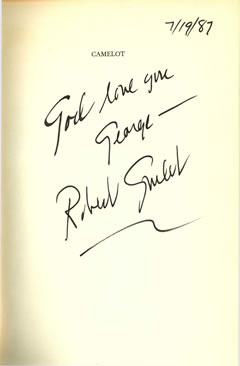 7/19/87
CAMELOT
God love you
George —
Robert Goulet